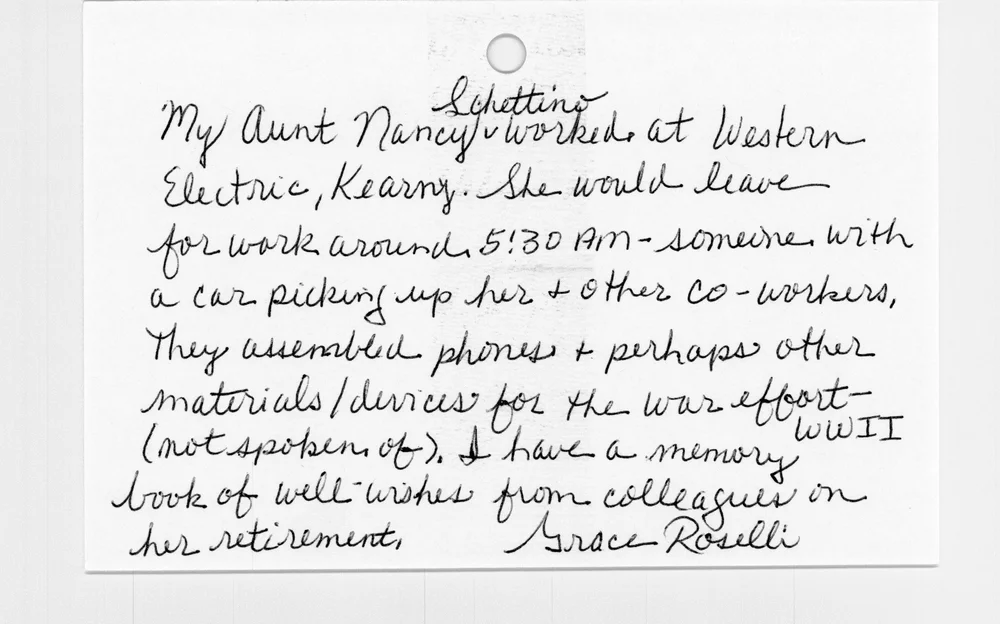 Schettino
My Aunt Nancy ˅ worked at Western
Electric, Kearny. She would leave
for work around 5:30 AM - someone with
a car picking up her + other co-workers,
They assembled phones + perhaps other
materials/devices for the war effort -
WWII
(not spoken of). I have a memory
book of well-wishes from colleagues on
her retirement. Grace Roselli